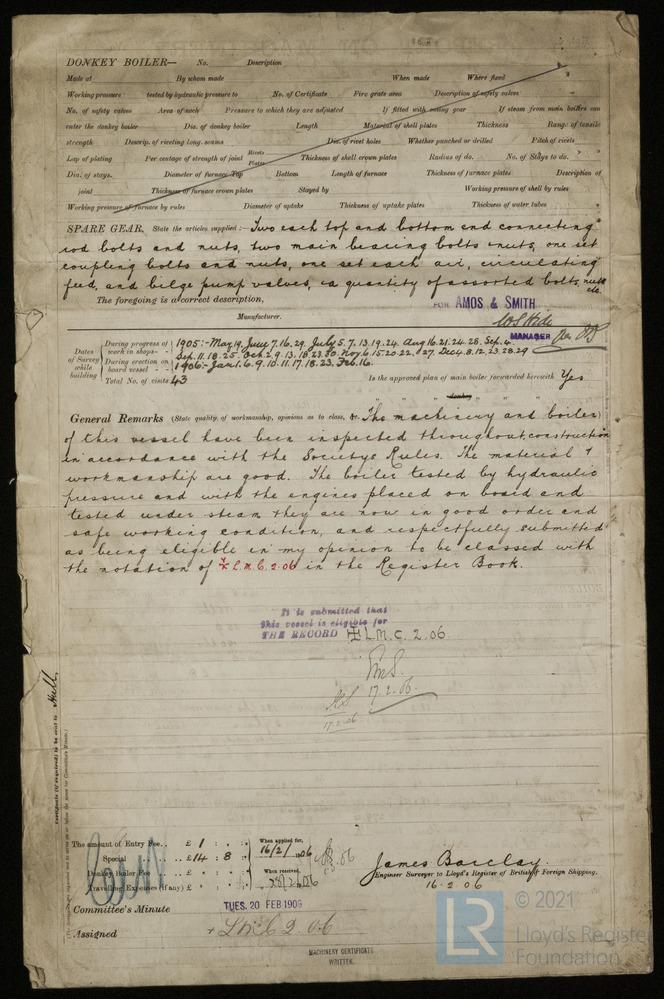 DONKEY BOILER— No. Description
Made at By whom made When made Where fixed
Working pressure tested by hydraulic pressure to No. of Certificate Fire grate area Description of safety valves
No. of safety valves Area of each Pressure to which they are adjusted If fitted with easing gear If steam from main boilers can
enter the donkey boiler Dia. of donkey boiler Length Material of shell plates Thickness Range of tensile
strength Descrip. of riveting long. seams Dia. of rivet holes Whether punched or drilled Pitch of rivets
Lap of plating Per centage of strength of joint Rivets Plates Thickness of shell crown plates Radius of do. No. of Stays to do.
Dia. of stays. Diameter of furnace Top Bottom Length of furnace Thickness of furnace plates Description of
joint Thickness of furnace crown plates Stayed by Working pressure of shell by rules
Working pressure of furnace by rules Diameter of uptake Thickness of uptake plates Thickness of water tubes
SPARE GEAR. State the articles supplied:— Two each top and bottom end connecting
rod bolts and nuts, two main bearing bolts & nuts, one set
coupling bolts and nuts, one set each air, circulating
feed, and bilge pump valves, & a quantity of assorted bolts, nuts
etc.
The foregoing is a correct description,
FOR AMOS & SMITH
Manufacturer.
MANAGER
Dates of Survey while building
During progress of work in shops - - 1905:- May 19. June 7.16.29. July 5.7.13.19.24. Aug 16.21.24.28. Sep. 4.
Sep. 11.18.25. Oct. 2.9.13.18.23.30. Nov. 6.15.20.22. 27. Dec 4.8.12.23.28.29
During erection on board vessel - - 1906:- Jan 1.6.9.10.11.17.18.23. Feb. 16.
Total No. of visits 43
Is the approved plan of main boiler forwarded herewith Yes
" " " donkey " " "
General Remarks (State quality, of workmanship, opinions as to class, &c. The machinery and boiler
of this vessel have been inspected throughout construction
in accordance with the Societys Rules. The material &
workmanship are good. The boiler tested by hydraulic
pressure and with the engines placed on board and
tested under steam they are now in good order and
safe working condition, and respectfully submitted
as being eligible in my opinion to be classed with
the notation of ✠ L.M.C. 2.06 in the Register Book.
It is submitted that
this vessel is eligible for
THE RECORD ✠ L.M.C. 2.06
17.2.06
17.2.06
Hull.
The amount of Entry Fee. . £ 1 : :
Special . . . £ 14 : 8 :
Donkey Boiler Fee . . . £ : :
Travelling Expenses (if any) £ : :
When applied for, 16/2/1906
When received,
James Barclay.
Engineer Surveyor to Lloyd's Register of British & Foreign Shipping.
16.2.06
Committee's Minute TUES. 20 FEB 1906
Assigned + LMC 2.06
MACHINERY CERTIFICATE
WRITTEN.
LR © 2021
Lloyd's Register
Foundation